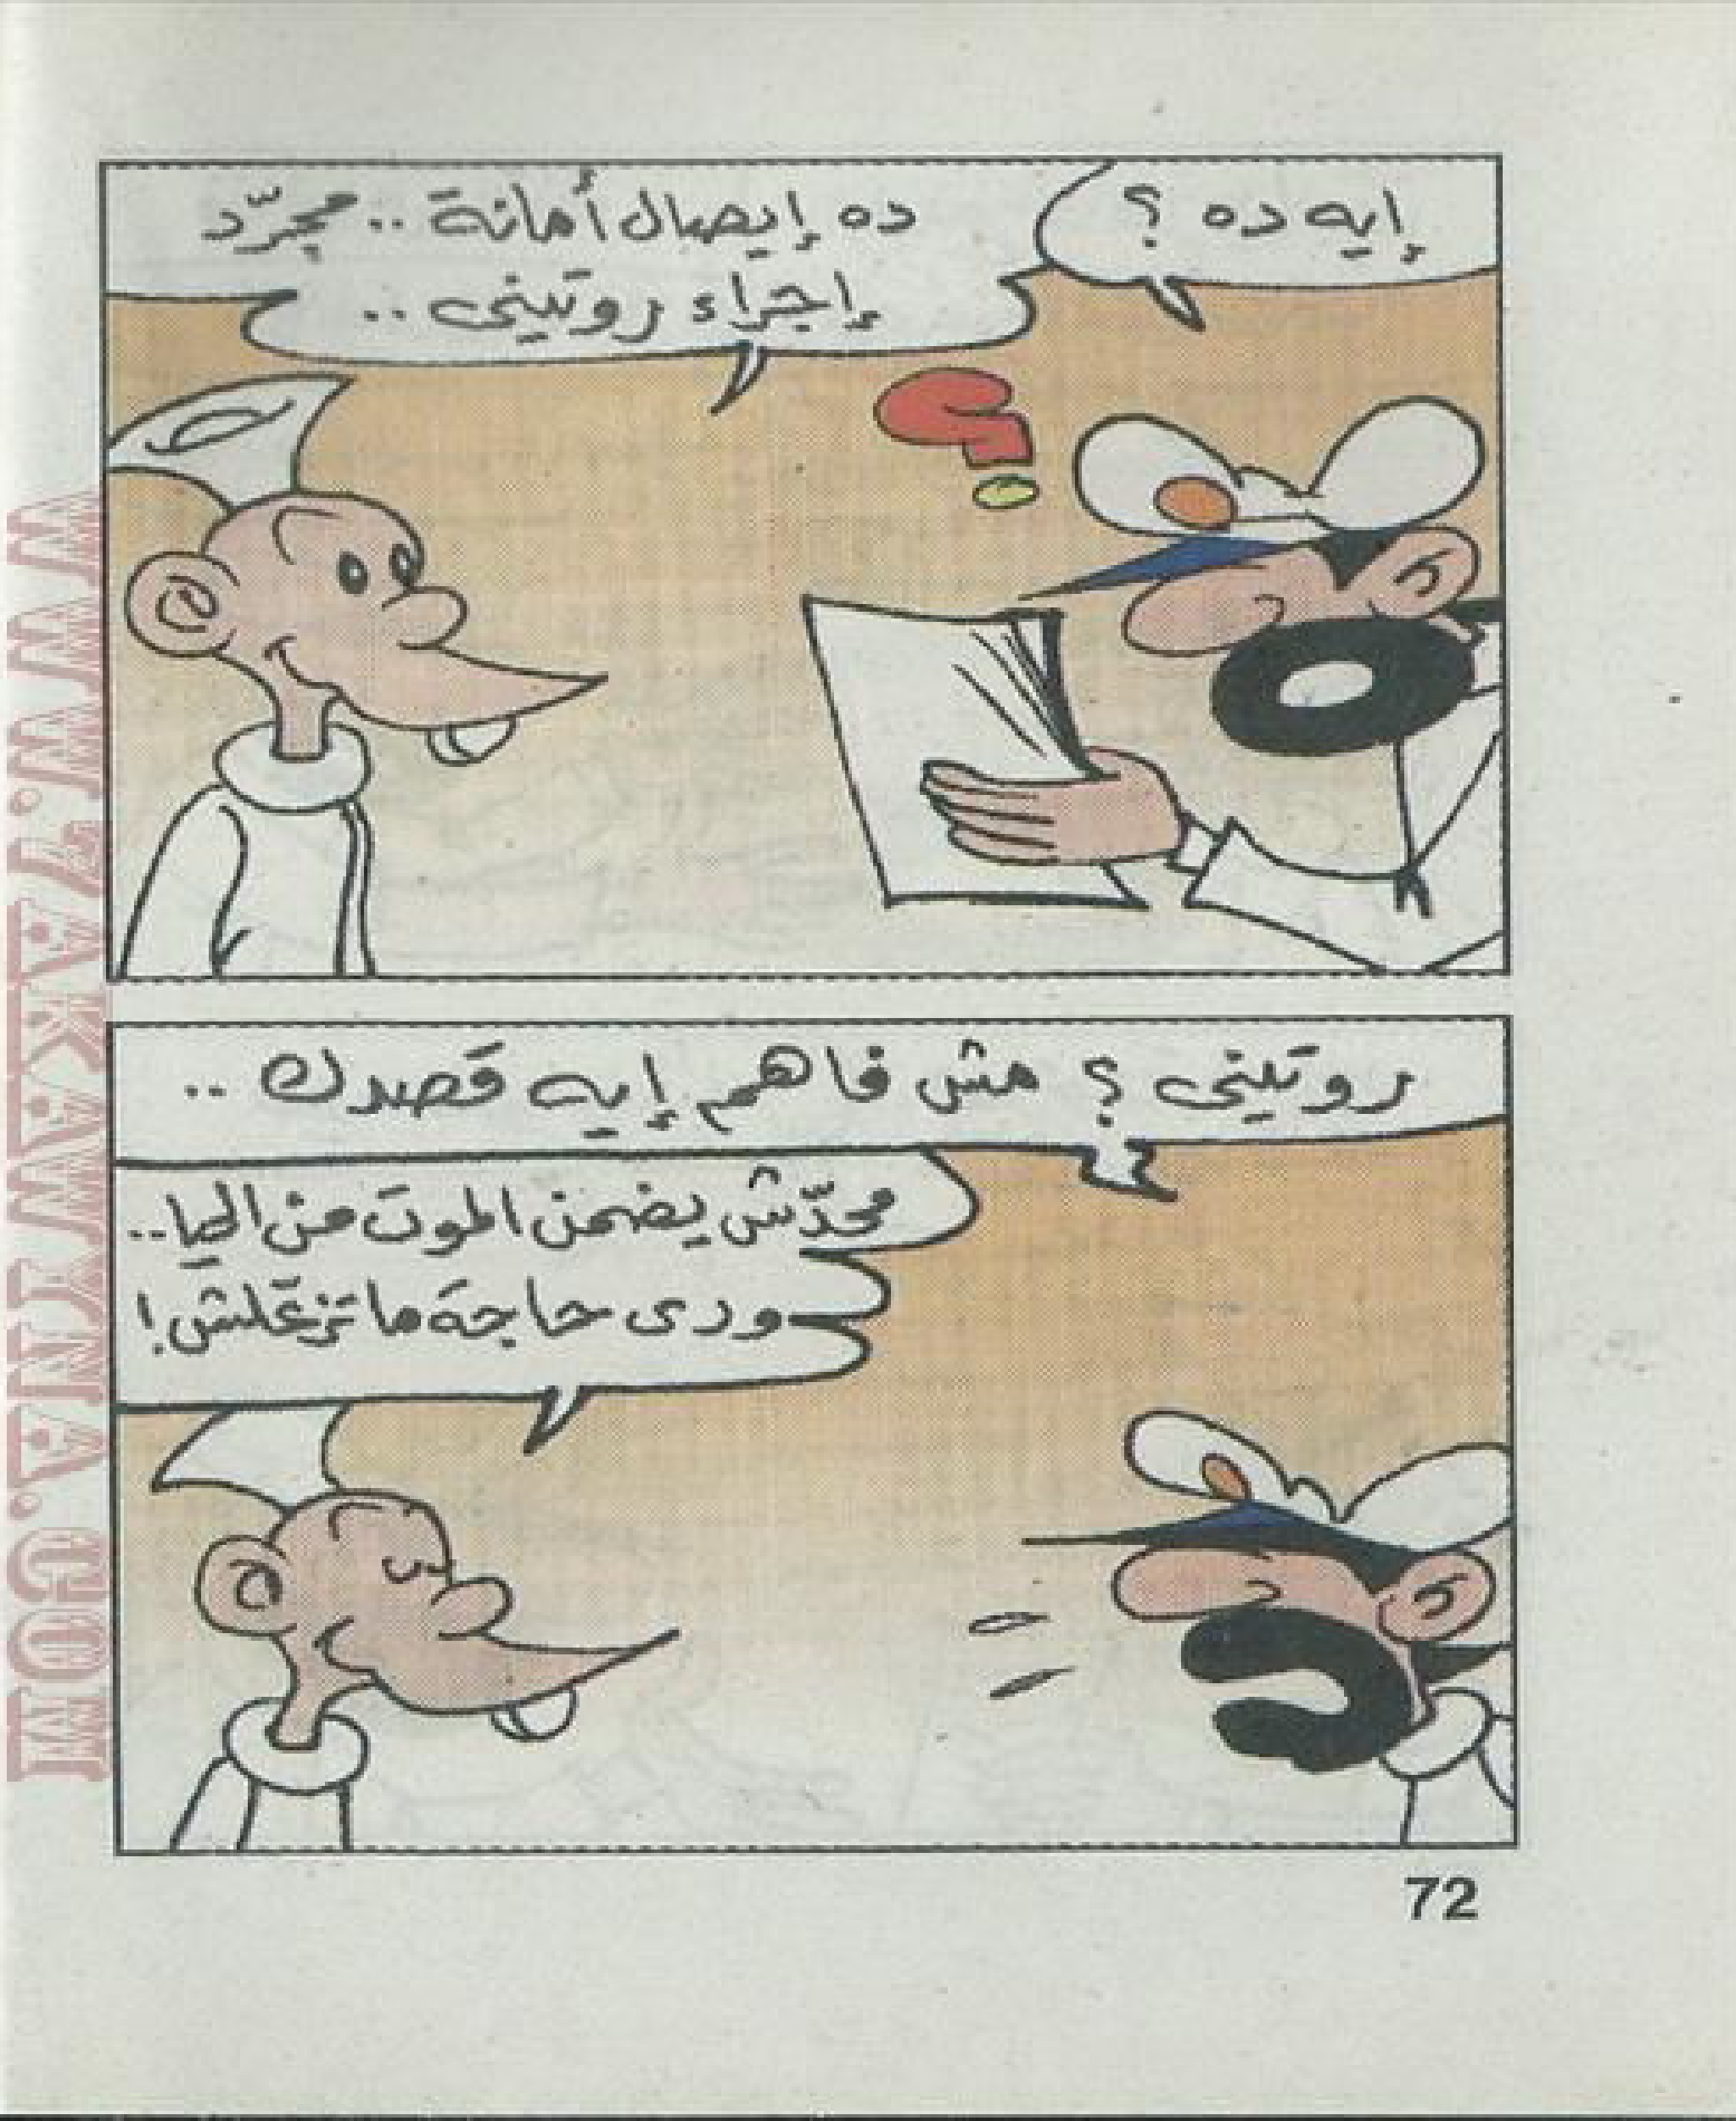 إيه ده ؟
ده إيصال أمانة .. مجرّد
إجراء روتينى ..
؟
روتينى ؟ مش فاهم إيه قصدك ..
محدّش يضمن الموت من الحيا..
ودى حاجة ما تزعّلش !
72
WWW.ZAKEWTNA.COM